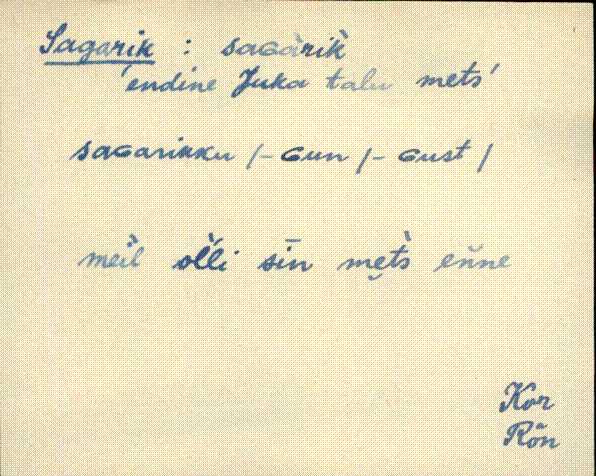 Sagarik : saGàrik̀
'endine Juka talu mets'
saGarikku /-Gun /-Gust /
meìl ol̀li sīn mę̀ts eňne
Kor
Rõn